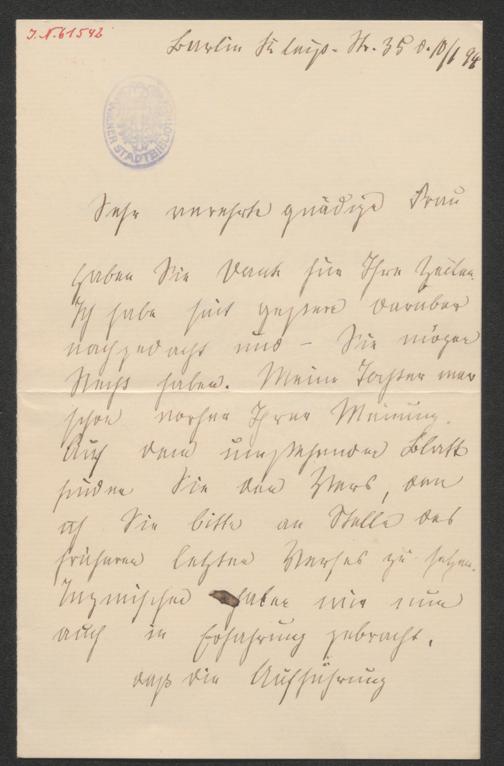 J.N. 61542
Berlin Kleist-Str. 35 d. 10/1 98
WIENER STADTBIBLIOTHEK
Sehr verehrte gnädige Frau
haben Sie Dank für Ihre Zeilen.
Ich habe seit gestern darüber
nachgedacht und – Sie mögen
Recht haben. Meine Tochter war
schon vorher Ihrer Meinung.
Auf dem umstehenden Blatt
finden Sie den Vers, den
ich Sie bitte an Stelle des
früheren letzten Verses zu setzen.
Inzwischen haben wir nun
auch in Erfahrung gebracht,
daß die Aufführung